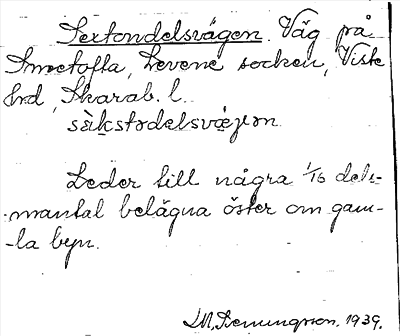 Sextondelsvägen. Väg på
Smetofta, Levene socken, Viste
hrd, Skarab. l.
sàk̬stodelsvæ̣jən
Leder till några 1/16 dels-
mantal belägna öster om gam-
-la byn.
1939.